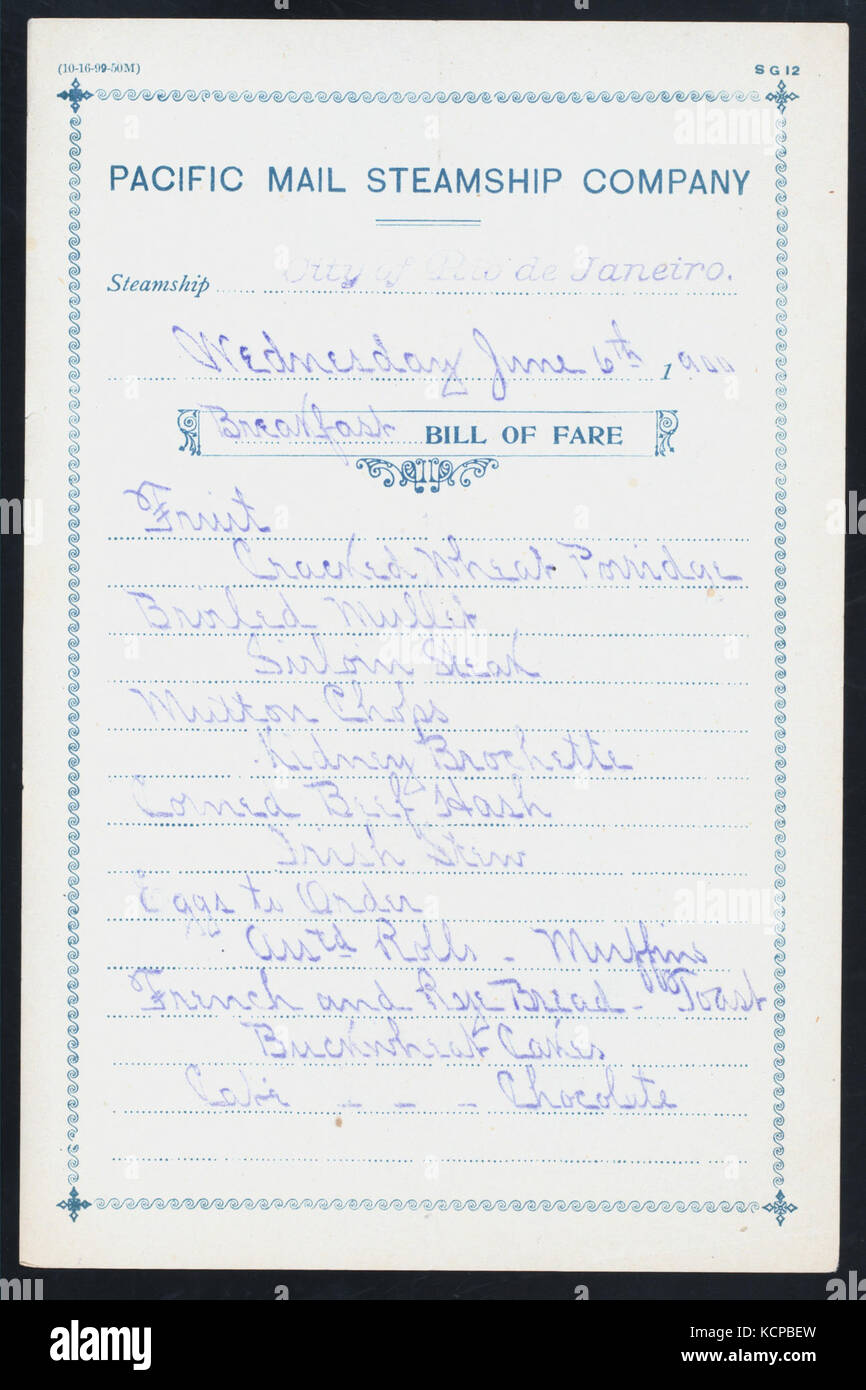 (10-16-99-50M) S G 12
PACIFIC MAIL STEAMSHIP COMPANY
Steamship City of Rio de Janeiro.
Wednesday June 6th 1900
Breakfast BILL OF FARE
Fruit
Cracked Wheat Porridge
Broiled Mullet
Sirloin Steak
Mutton Chops
Kidney Brochette
Corned Beef Hash
Irish Stew
Eggs to Order
Ass'td Rolls - Muffins
French and Rye Bread - Toast
Buckwheat Cakes
Cafe - - - Chocolate
alamy
Image ID: KCPBEW
www.alamy.com